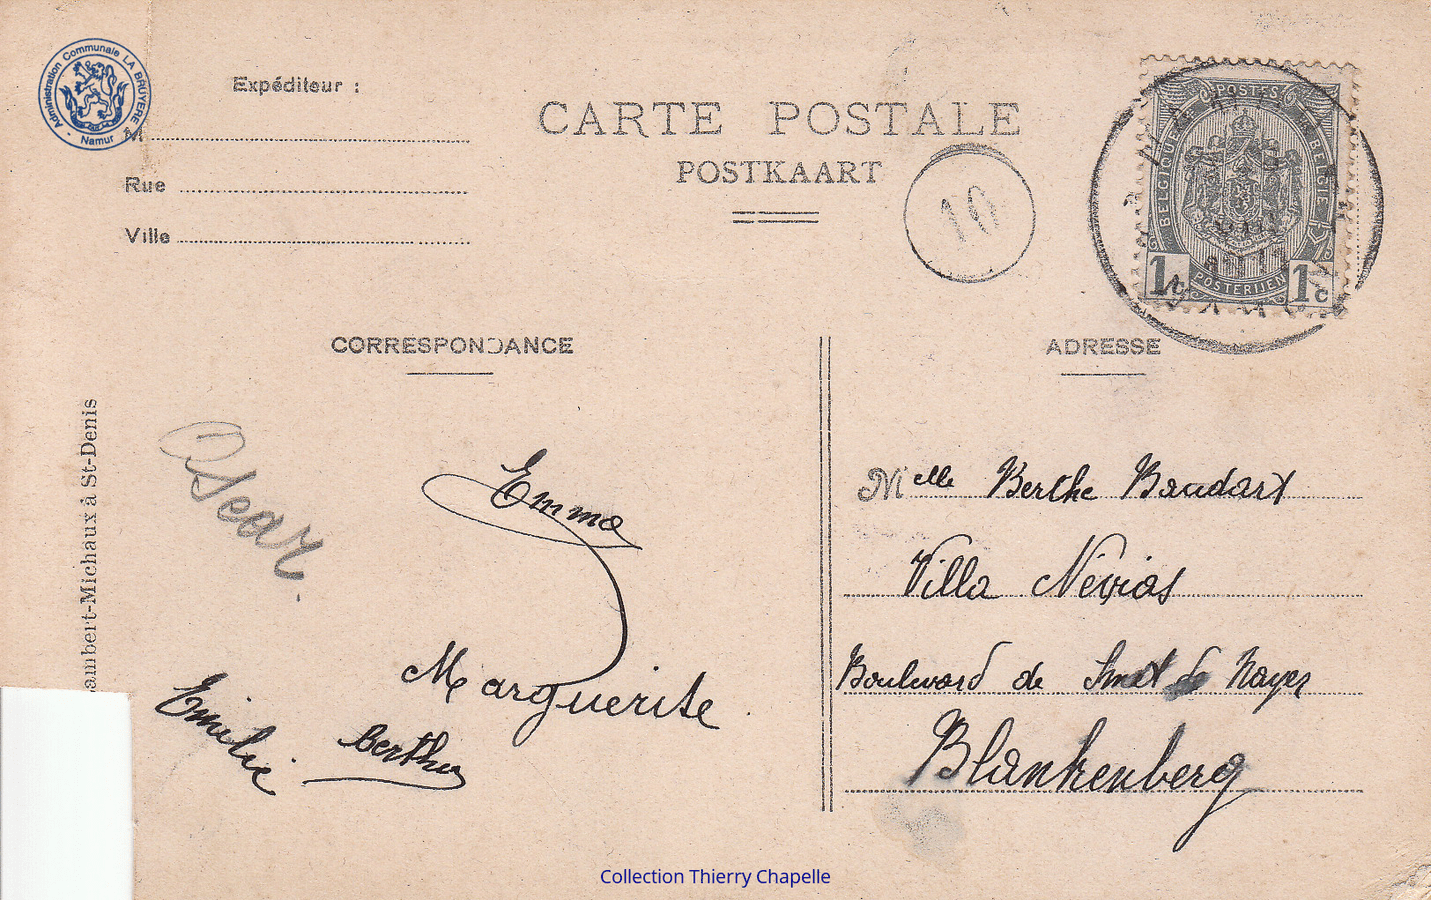 Administration Communale LA BRUYERE
- Namur -
Expéditeur :
M
Rue
Ville
CARTE POSTALE
POSTKAART
10
POSTES
BELGIQUE
BELGIE
POSTERIJEN
1c
1c
CORRESPONDANCE
ADRESSE
ambert-Michaux à St-Denis
Oscar.
Emma
Marguerite
Emilie
Berthe
Melle Berthe Baudart
Villa Névias
Boulevard de Smet de Nayer
Blankenberg
Collection Thierry Chapelle